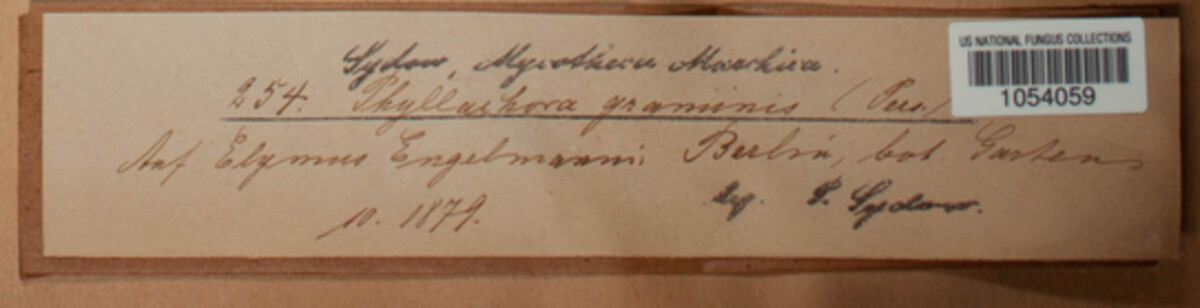 Sydow, Mycotheca Marchica.
254. Phyllachora graminis (Pers.)
Auf Elymus Engelmanni. Berlin, bot. Garten
10. 1879.
leg. P. Sydow.
US NATIONAL FUNGUS COLLECTIONS
1054059